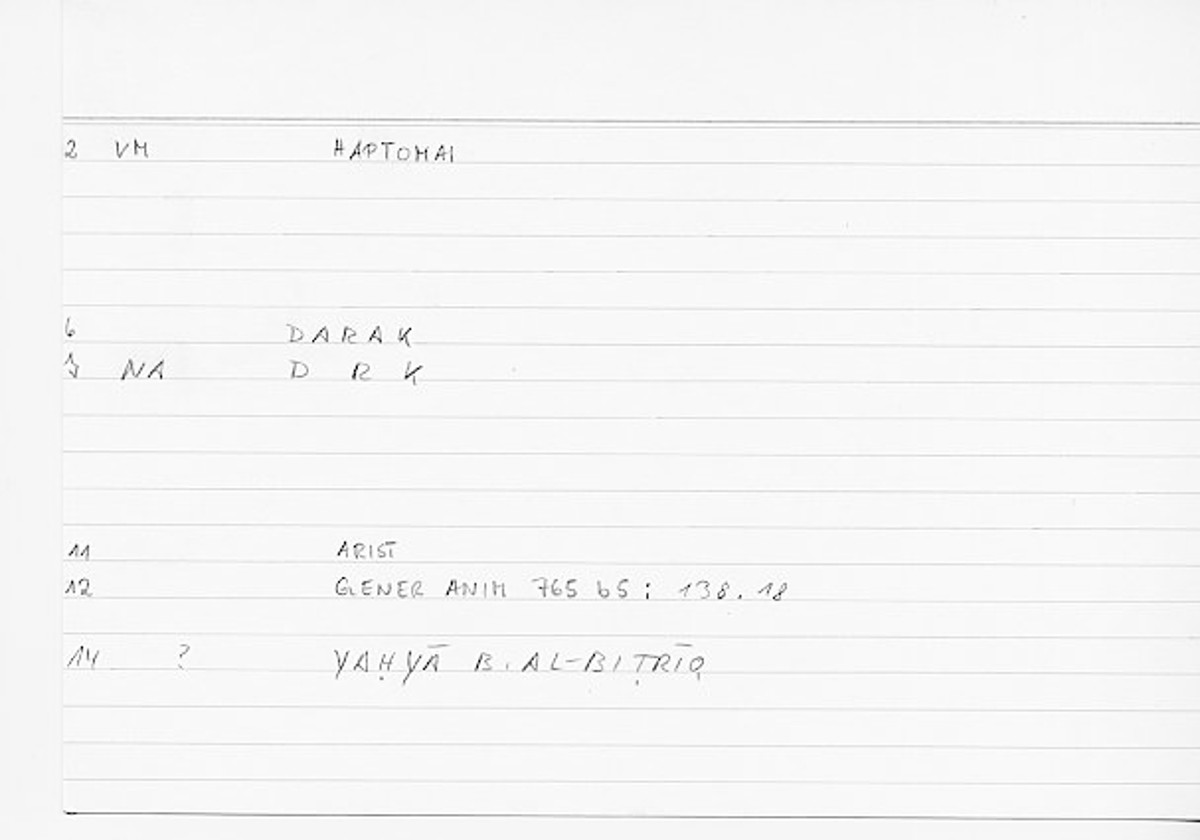 2 VM HAPTOMAI
6 DARAK
7 NA D R K
11 ARIST
12 GENER ANIM 765 b5 : 138.18
14 ? YAḤYĀ B. AL-BIṬRĪQ